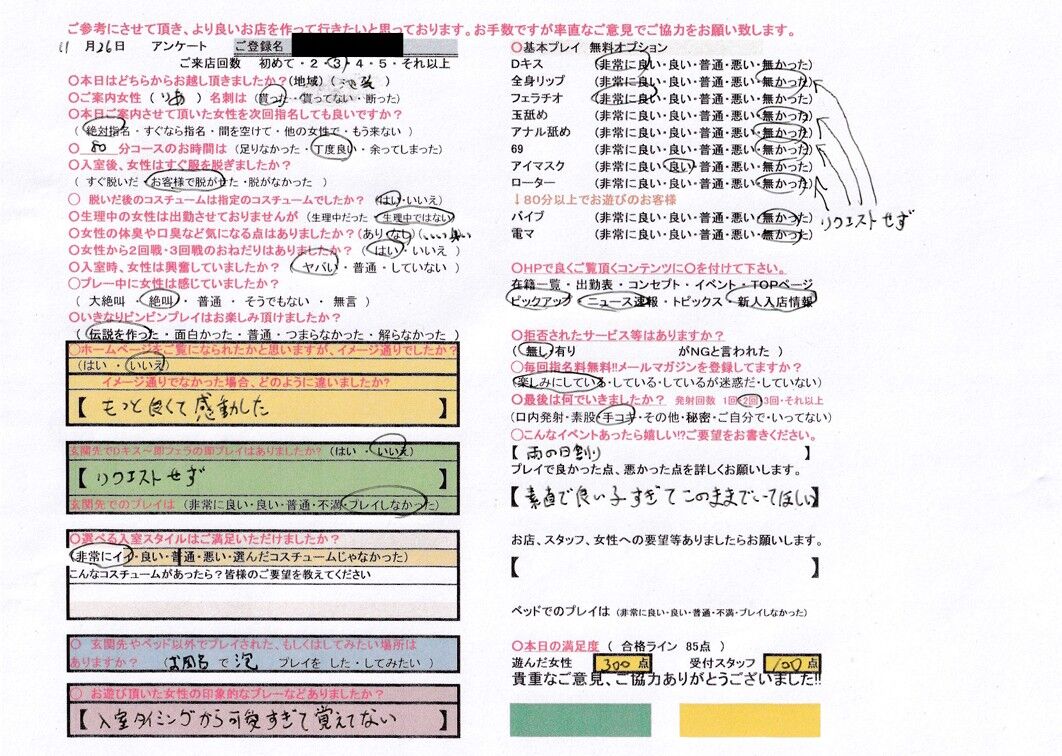 ご参考にさせて頂き、より良いお店を作って行きたいと思っております。お手数ですが率直なご意見でご協力をお願い致します。
11 月26日 アンケート ご登録名
ご来店回数 初めて・2・3・4・5・それ以上
〇本日はどちらからお越し頂きましたか?(地域)( )
〇ご案内女性 ( りあ ) 名刺は (貰った・貰ってない・断った)
〇本日ご案内させて頂いた女性を次回指名しても良いですか?
( 絶対指名・すぐなら指名・間を空けて・他の女性で・もう来ない )
〇 80 分コースのお時間は (足りなかった・丁度良い・余ってしまった)
〇入室後、女性はすぐ服を脱ぎましたか?
( すぐ脱いだ・お客様で脱がせた・脱がなかった )
〇 脱いだ後のコスチュームは指定のコスチュームでしたか? (はい・いいえ)
〇生理中の女性は出勤させておりませんが (生理中だった・生理中ではない)
〇女性の体臭や口臭など気になる点はありましたか?(あり・なし)( )
〇女性から2回戦・3回戦のおねだりはありましたか? ( はい・いいえ )
〇入室時、女性は興奮していましたか? ( ヤバい・普通・していない )
〇プレー中に女性は感じていましたか?
( 大絶叫・絶叫・普通・そうでもない・無言 )
〇いきなりビンビンプレイはお楽しみ頂けましたか?
( 伝説を作った・面白かった・普通・つまらなかった・解らなかった )
〇ホームページをご覧になられたかと思いますが、イメージ通りでしたか?
(はい ・いいえ)
イメージ通りでなかった場合、どのように違いましたか?
【 もっと良くて感動した 】
玄関先でDキス～即フェラの即プレイはありましたか? (はい ・いいえ)
【 リクエストせず 】
玄関先でのプレイは (非常に良い・良い・普通・不満・プレイしなかった)
〇選べる入室スタイルはご満足いただけましたか?
(非常にイイ・良い・普通・悪い・選んだコスチュームじゃなかった)
こんなコスチュームがあったら?皆様のご要望を教えてください
〇 玄関先やベッド以外でプレイされた、もしくはしてみたい場所は
ありますか? (お風呂 で 泡 プレイを した・してみたい )
〇 お遊び頂いた女性の印象的なプレーなどありましたか?
【 入室タイミングから可愛すぎて覚えてない 】
〇基本プレイ 無料オプション
Dキス (非常に良い・良い・普通・悪い・無かった)
全身リップ (非常に良い・良い・普通・悪い・無かった)
フェラチオ (非常に良い・良い・普通・悪い・無かった)
玉舐め (非常に良い・良い・普通・悪い・無かった)
アナル舐め (非常に良い・良い・普通・悪い・無かった)
69 (非常に良い・良い・普通・悪い・無かった)
アイマスク (非常に良い・良い・普通・悪い・無かった)
ローター (非常に良い・良い・普通・悪い・無かった)
↓80分以上でお遊びのお客様
バイブ (非常に良い・良い・普通・悪い・無かった)
リクエストせず
電マ (非常に良い・良い・普通・悪い・無かった)
〇HPで良くご覧頂くコンテンツに〇を付けて下さい。
在籍一覧・出勤表・コンセプト・イベント・TOPページ
ピックアップ・ニュース速報・トピックス・新人入店情報
〇拒否されたサービス等はありますか?
( 無し 有り がNGと言われた )
〇毎回指名料無料!!メールマガジンを登録してますか?
(楽しみにしている・している・しているが迷惑だ・していない)
〇最後は何でいきましたか? 発射回数 1回・2回・3回・それ以上
(口内発射・素股・手コキ・その他・秘密・ご自分で・いってない)
〇こんなイベントあったら嬉しい!?ご要望をお書きください。
【 雨の日割り 】
プレイで良かった点、悪かった点を詳しくお願いします。
【素直で良い子すぎてこのままでいてほしい】
お店、スタッフ、女性への要望等ありましたらお願いします。
【 】
ベッドでのプレイは (非常に良い・良い・普通・不満・プレイしなかった)
〇本日の満足度 ( 合格ライン 85点 )
遊んだ女性 300 点 受付スタッフ 100 点
貴重なご意見、ご協力ありがとうございました!!